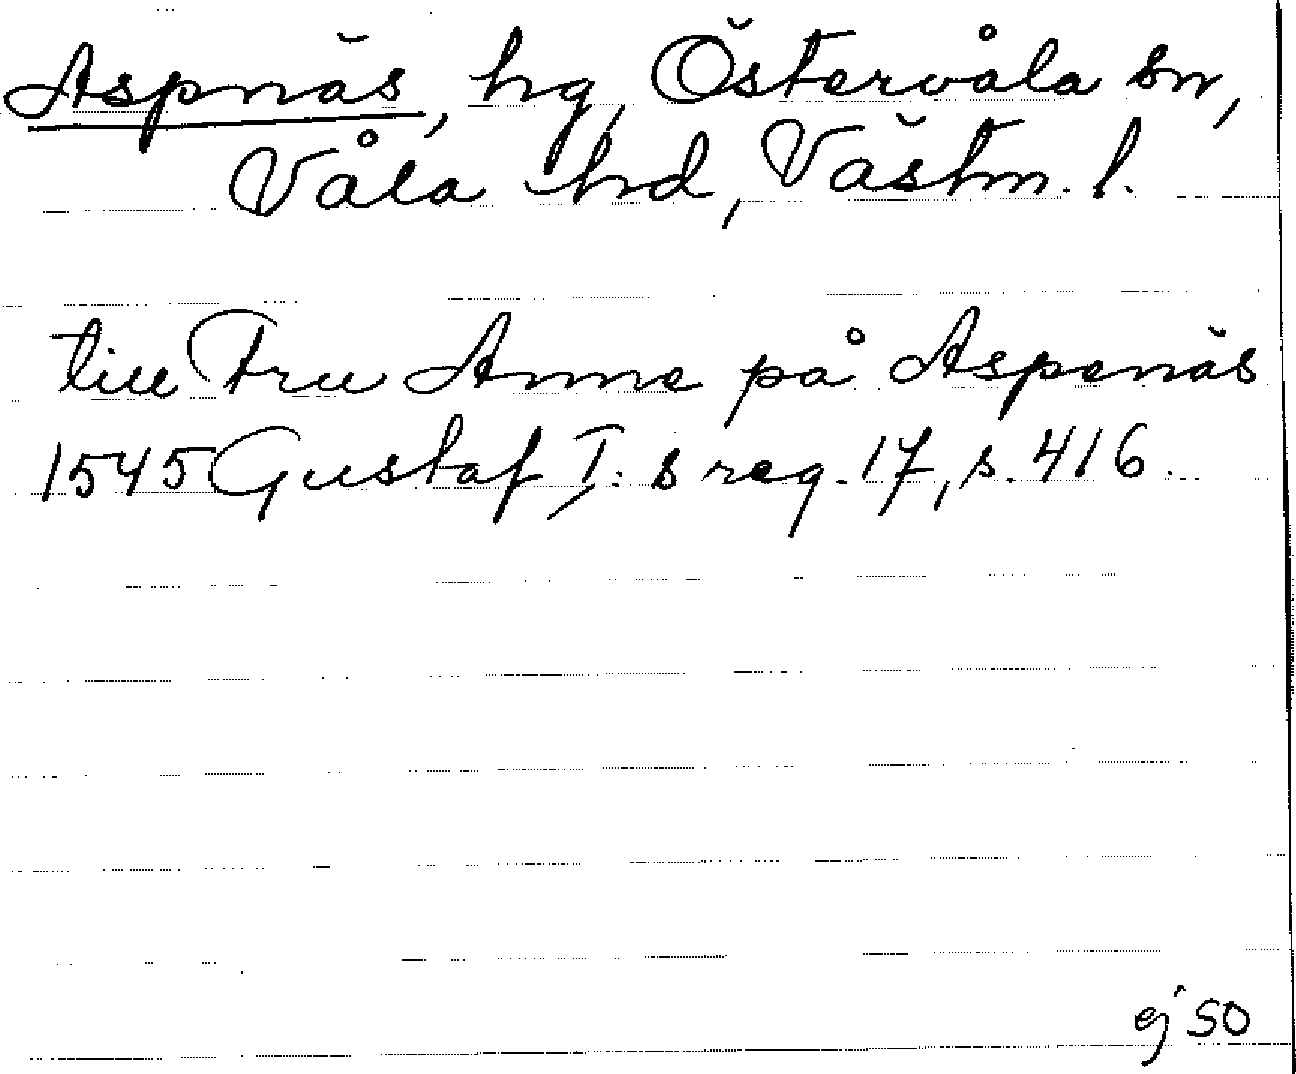 Aspnäs, hg, Östervåla sn,
Våla hd, Västm. l.
till Fru Anne på Aspenäs
1545 Gustaf I:s reg. 17, s. 416.
ej SO